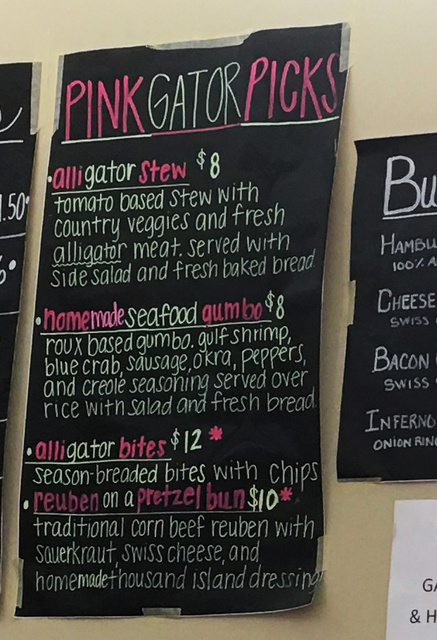 PINK GATOR PICKS
• alligator stew $8
tomato based stew with
country veggies and fresh
alligator meat. served with
side salad and fresh baked bread
• homemade seafood gumbo $8
roux based gumbo. gulf shrimp,
blue crab, sausage, okra, peppers,
and creole seasoning served over
rice with salad and fresh bread
• alligator bites $12 *
season-breaded bites with chips
• reuben on a pretzel bun $10 *
traditional corn beef reuben with
sauerkraut, swiss cheese, and
homemade thousand island dressing
1.50
Bu
HAMBU
100% A
CHEESE
SWISS
BACON
SWISS
INFERNO
ONION RIN
GA
& H